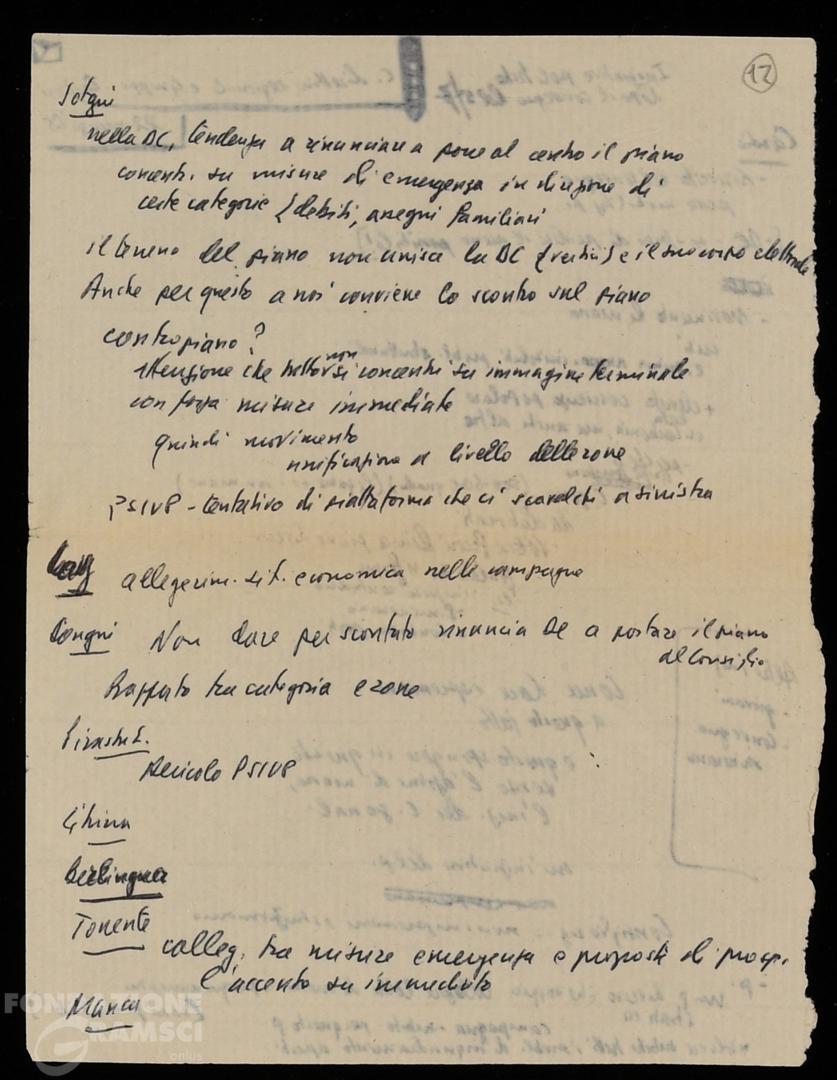 12
Sotgiu
nella DC, tendenza a rinunciare a porre al centro il piano
concentr. su misure di emergenza in direzione di
certe categorie (debiti, assegni familiari
il terreno del piano non unisce la DC (vertici) e il suo corpo elettorale
Anche per questo a noi conviene lo scontro sul piano
contropiano?
attenzione che non si concentri su immagine terminale
con forza misure immediate
quindi movimento
unificazione a livello delle zone
PSIUP - tentativo di piattaforma che ci scavalchi a sinistra
Lay allegerim. sit. economica nelle campagne
Congiu Non dare per scontato rinuncia DC a portare il piano
al Consiglio
Rapporto tra categoria e zone
Pirastu L.
Pericolo PSIUP
Berlinguer
Torrente
colleg. tra misure emergenza e proposte di progr.
L'accento su immediato
Manca
FONDAZIONE
GRAMSCI
onlus